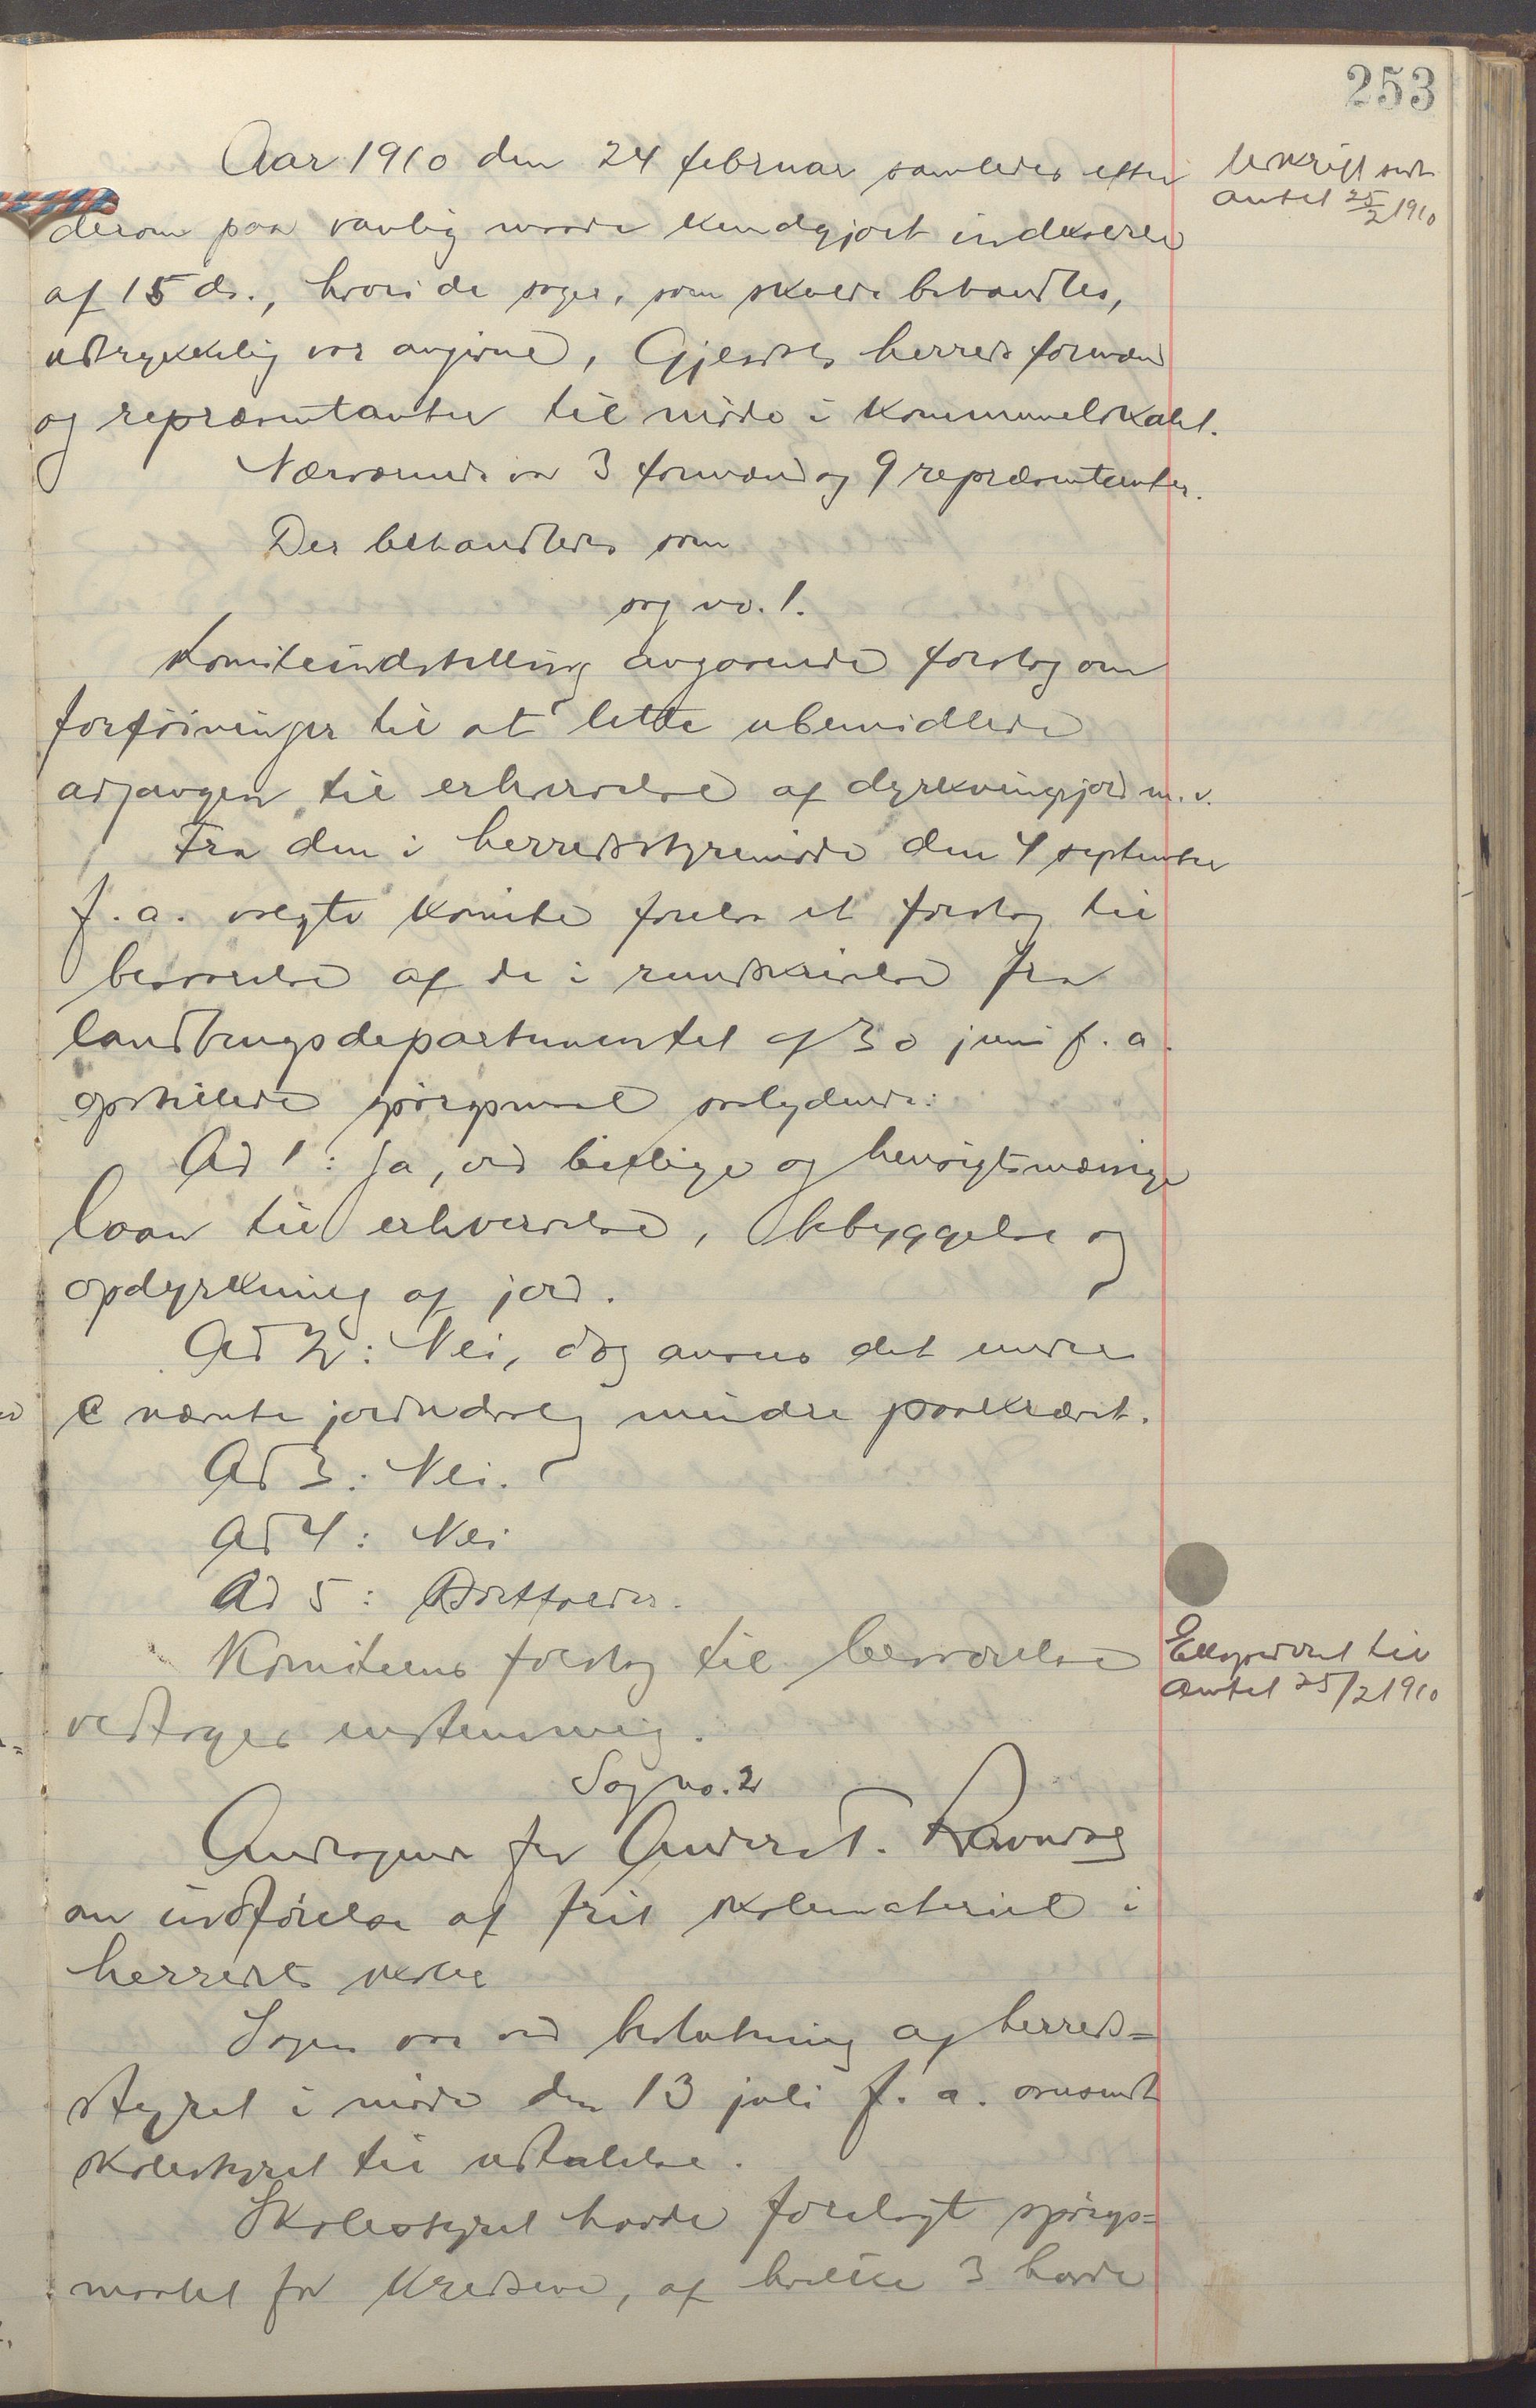 253
Aar 1910 den 24 februar samledes efter
derom paa vanlig maade kundgjort indkaldelse
af 15 ds., hvori de sager, som skulde behandles,
udtrykkelig var angivne, Gjesdals herreds formænd
og repræsentanter til møde i kommunelokalet.
Nærværende var 3 formænd og 9 repræsentanter.
Der behandledes som
sag no. 1.
Komiteindstilling angaaende forslag om
forføininger til at lette ubemidlede
adgangen til erhvervelse af dyrkningsjord m. v.
Fra den i herredsstyremøde den 4 september
f. a. valgte komite forelaa et forslag til
besvarelse af de i rundskrivelse fra
landbrugsdepartementet af 30 juni f. a.
opstillede spørgsmaal saalydende:
Ad 1: Ja, ved billige og hensigtsmæssige
laan til erhvervelse, bebyggelse og
opdyrkning af jord.
Ad 2: Nei, dog ansees det under
c nævnte jordudvalg mindre paakrævet.
Ad 3: Nei.
Ad 4: Nei
Ad 5: Bortfalder.
Komiteens forslag til besvarelse
vedtages enstemmig.
Sag no. 2
Andragende fra Anders T. Ravndal
om indførelse af frit skolemateriel i
herredets skoler
Sagen var ved beslutning af herreds=
styret i møde den 13 juli f. a. oversendt
skolestyret til udtalelse.
Skolestyret havde forelagt spørgs=
maalet for kredsene, af hvilke 3 havde
Utskrift sendt
amtet 25/2 1910
Ekspedert til
amtet 25/2 1910